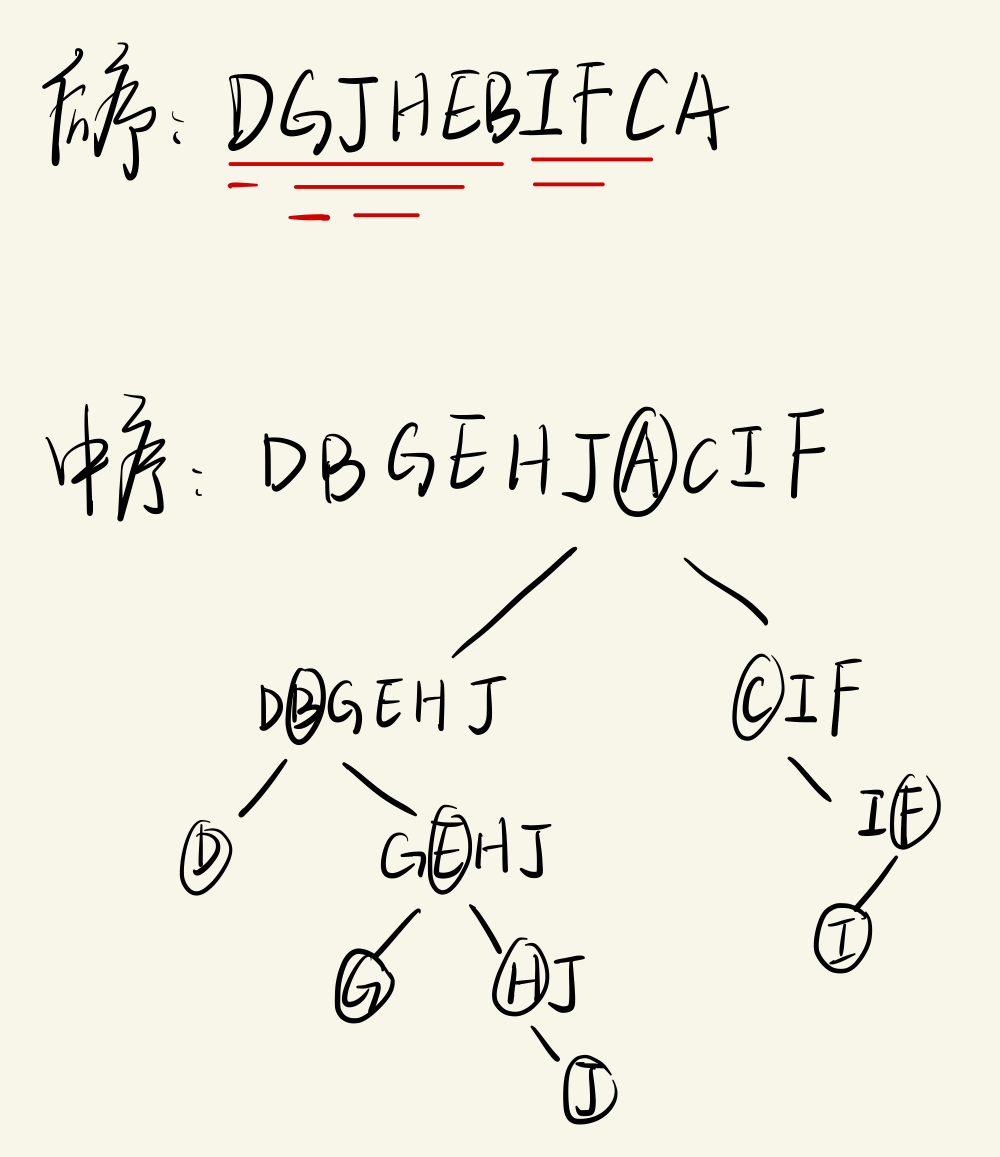 后序：DGJHEBIFCA
中序：DBGEHJACIF
DBGEHJ CIF
IF
D GEHJ
I
G HJ
J